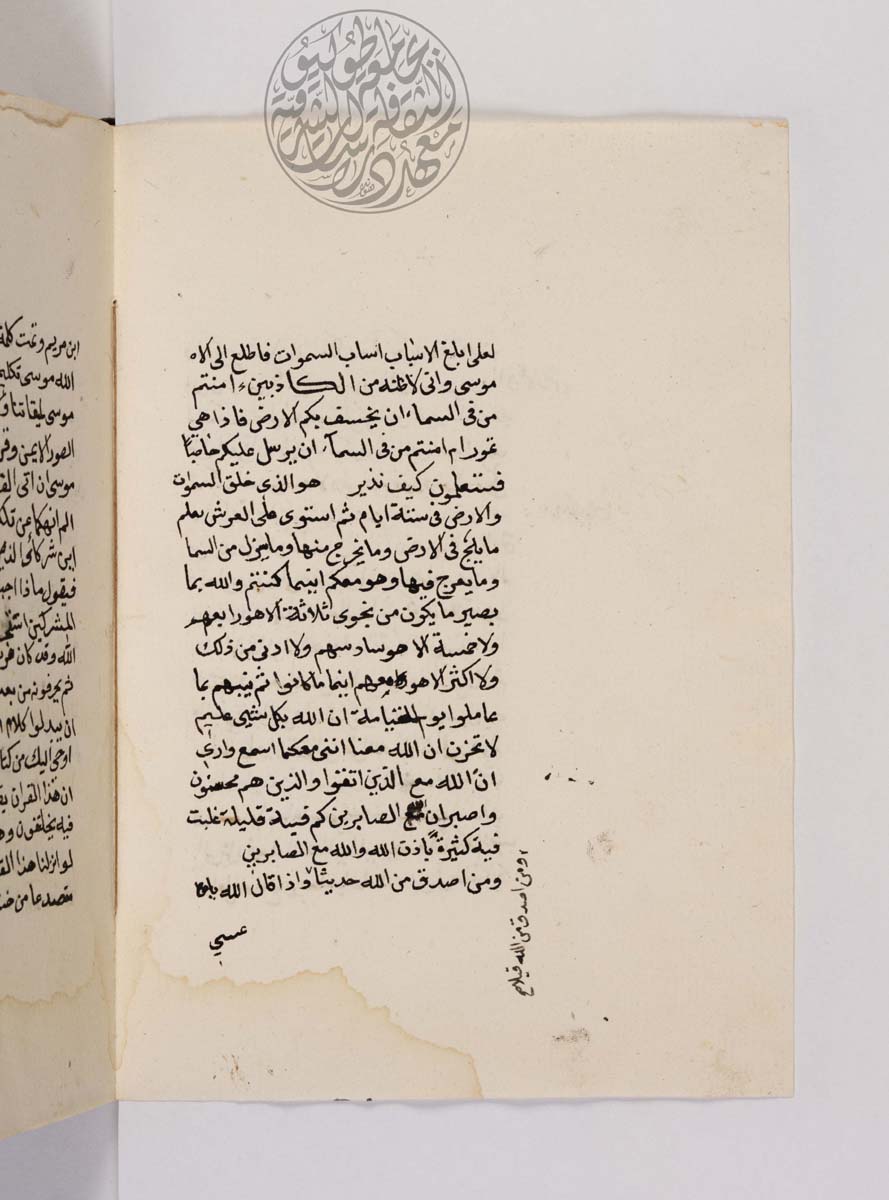 لعلى ابلغ الاسباب اسباب السموات فاطلع الى الاه
موسى وانى لاظنه من الكاذبين ءامنتم
من فى السماء ان يخسف بكم الارض فاذا هي
تمور ام امنتم من فى السمآء ان يرسل عليكم حاصبا
فستعلمون كيف نذير هو الذي خلق السموات
والارض فى ستة ايام ثم استوى على العرش يعلم
ما يلج فى الارض وما يخرج منها وما ينزل من السما
وما يعرج فيها وهو معكم اينما كنتم والله بما
بصير ما يكون من نجوى ثلاثة الا هو رابعهم
ولا خمسة الا هو سادسهم ولا ادنى من ذلك
ولا اكثر الا هو معهم اينما ما كانوا ثم ينبهم بما
عاملوا يوم القيامة ان الله بكل شيى عليم
لا تحزن ان الله معنا اننى معكما اسمع وارى
ان الله مع الذين اتقوا والذين هم محسنون
واصبر ان الصابرين كم فية قليلة غلبت
فية كثيرة باذن الله والله مع الصابرين
ومن اصدق من الله حديثا واذا قال الله يا
عيسي
ومن اصدق من الله قيلا
ابن مريم وتمت كلمة
الله موسى تكليم
موسى لميقاتنا
الصور الايمن وقر
موسى ان اتى الق
الم انهكما عن تلك
اين شركائى الذين
فيقول ماذا اجب
المشركين استج
الله وقد كان فر
ثم يحرفونه من بعد
ان يبدلوا كلام ا
اوحى اليك من كتا
ان هذا القران يق
فيه يختلفون وه
لو انزلنا هذا الق
متصدعا من خش
جامعة طوكيو
معهد دراسات الثقافة الشرقية